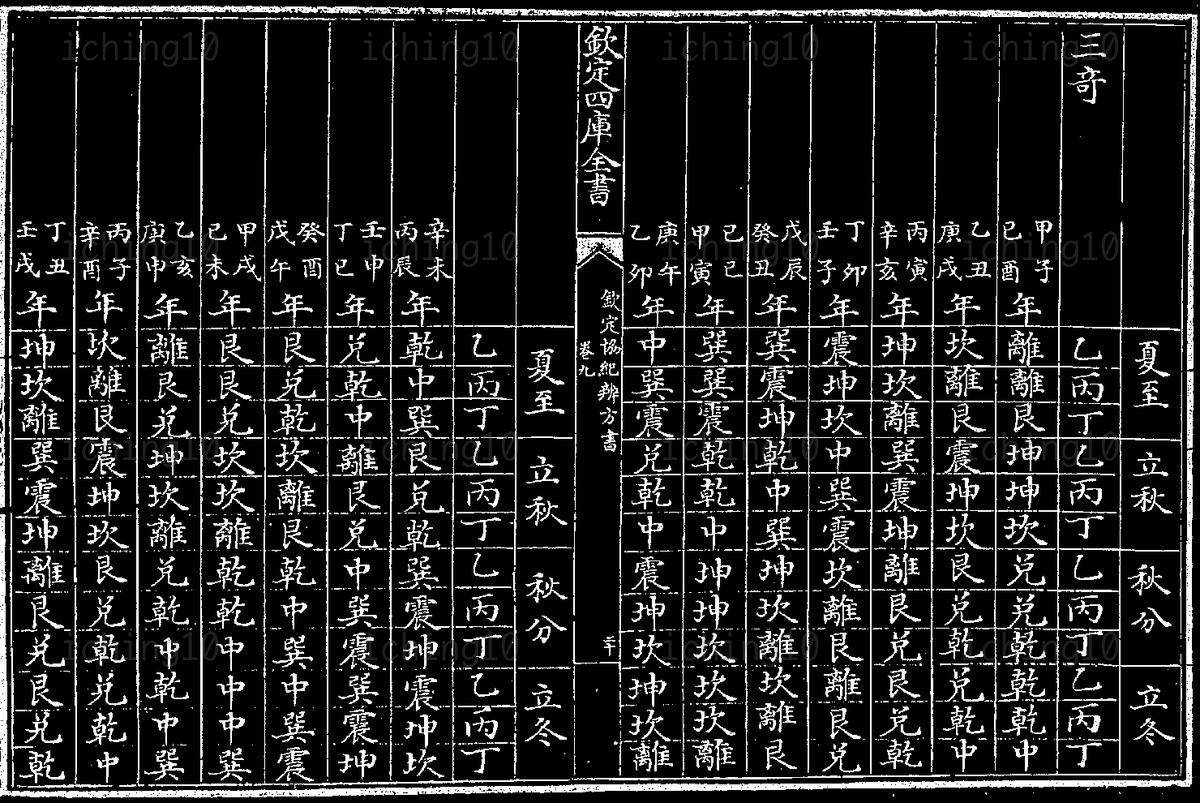 夏至 立秋 秋分 立冬
三奇 乙丙丁乙丙丁乙丙丁乙丙丁
甲子 己酉 年 離離艮坤坤坎兌兌乾乾乾中
乙丑 庚戌 年 坎離艮震坤坎艮兌乾兌乾中
丙寅 辛亥 年 坤坎離巽震坤離艮兌艮兌乾
丁卯 壬子 年 震坤坎中巽震坎離艮離艮兌
戊辰 癸丑 年 巽震坤乾中巽坤坎離坎離艮
己巳 甲寅 年 巽巽震乾乾中坤坤坎坎坎離
庚午 乙卯 年 中巽震兌乾中震坤坎坤坎離
欽定四庫全書
欽定協紀辨方書
卷九
夏至 立秋 秋分 立冬
乙丙丁乙丙丁乙丙丁乙丙丁
辛未 丙辰 年 乾中巽艮兌乾巽震坤震坤坎
壬申 丁巳 年 兌乾中離艮兌中巽震巽震坤
癸酉 戊午 年 艮兌乾坎離艮乾中巽中巽震
甲戌 己未 年 艮艮兌坎坎離乾乾中中中巽
乙亥 庚申 年 離艮兌坤坎離兌乾中乾中巽
丙子 辛酉 年 坎離艮震坤坎艮兌乾兌乾中
丁丑 壬戌 年 坤坎離巽震坤離艮兌艮兌乾
iching10